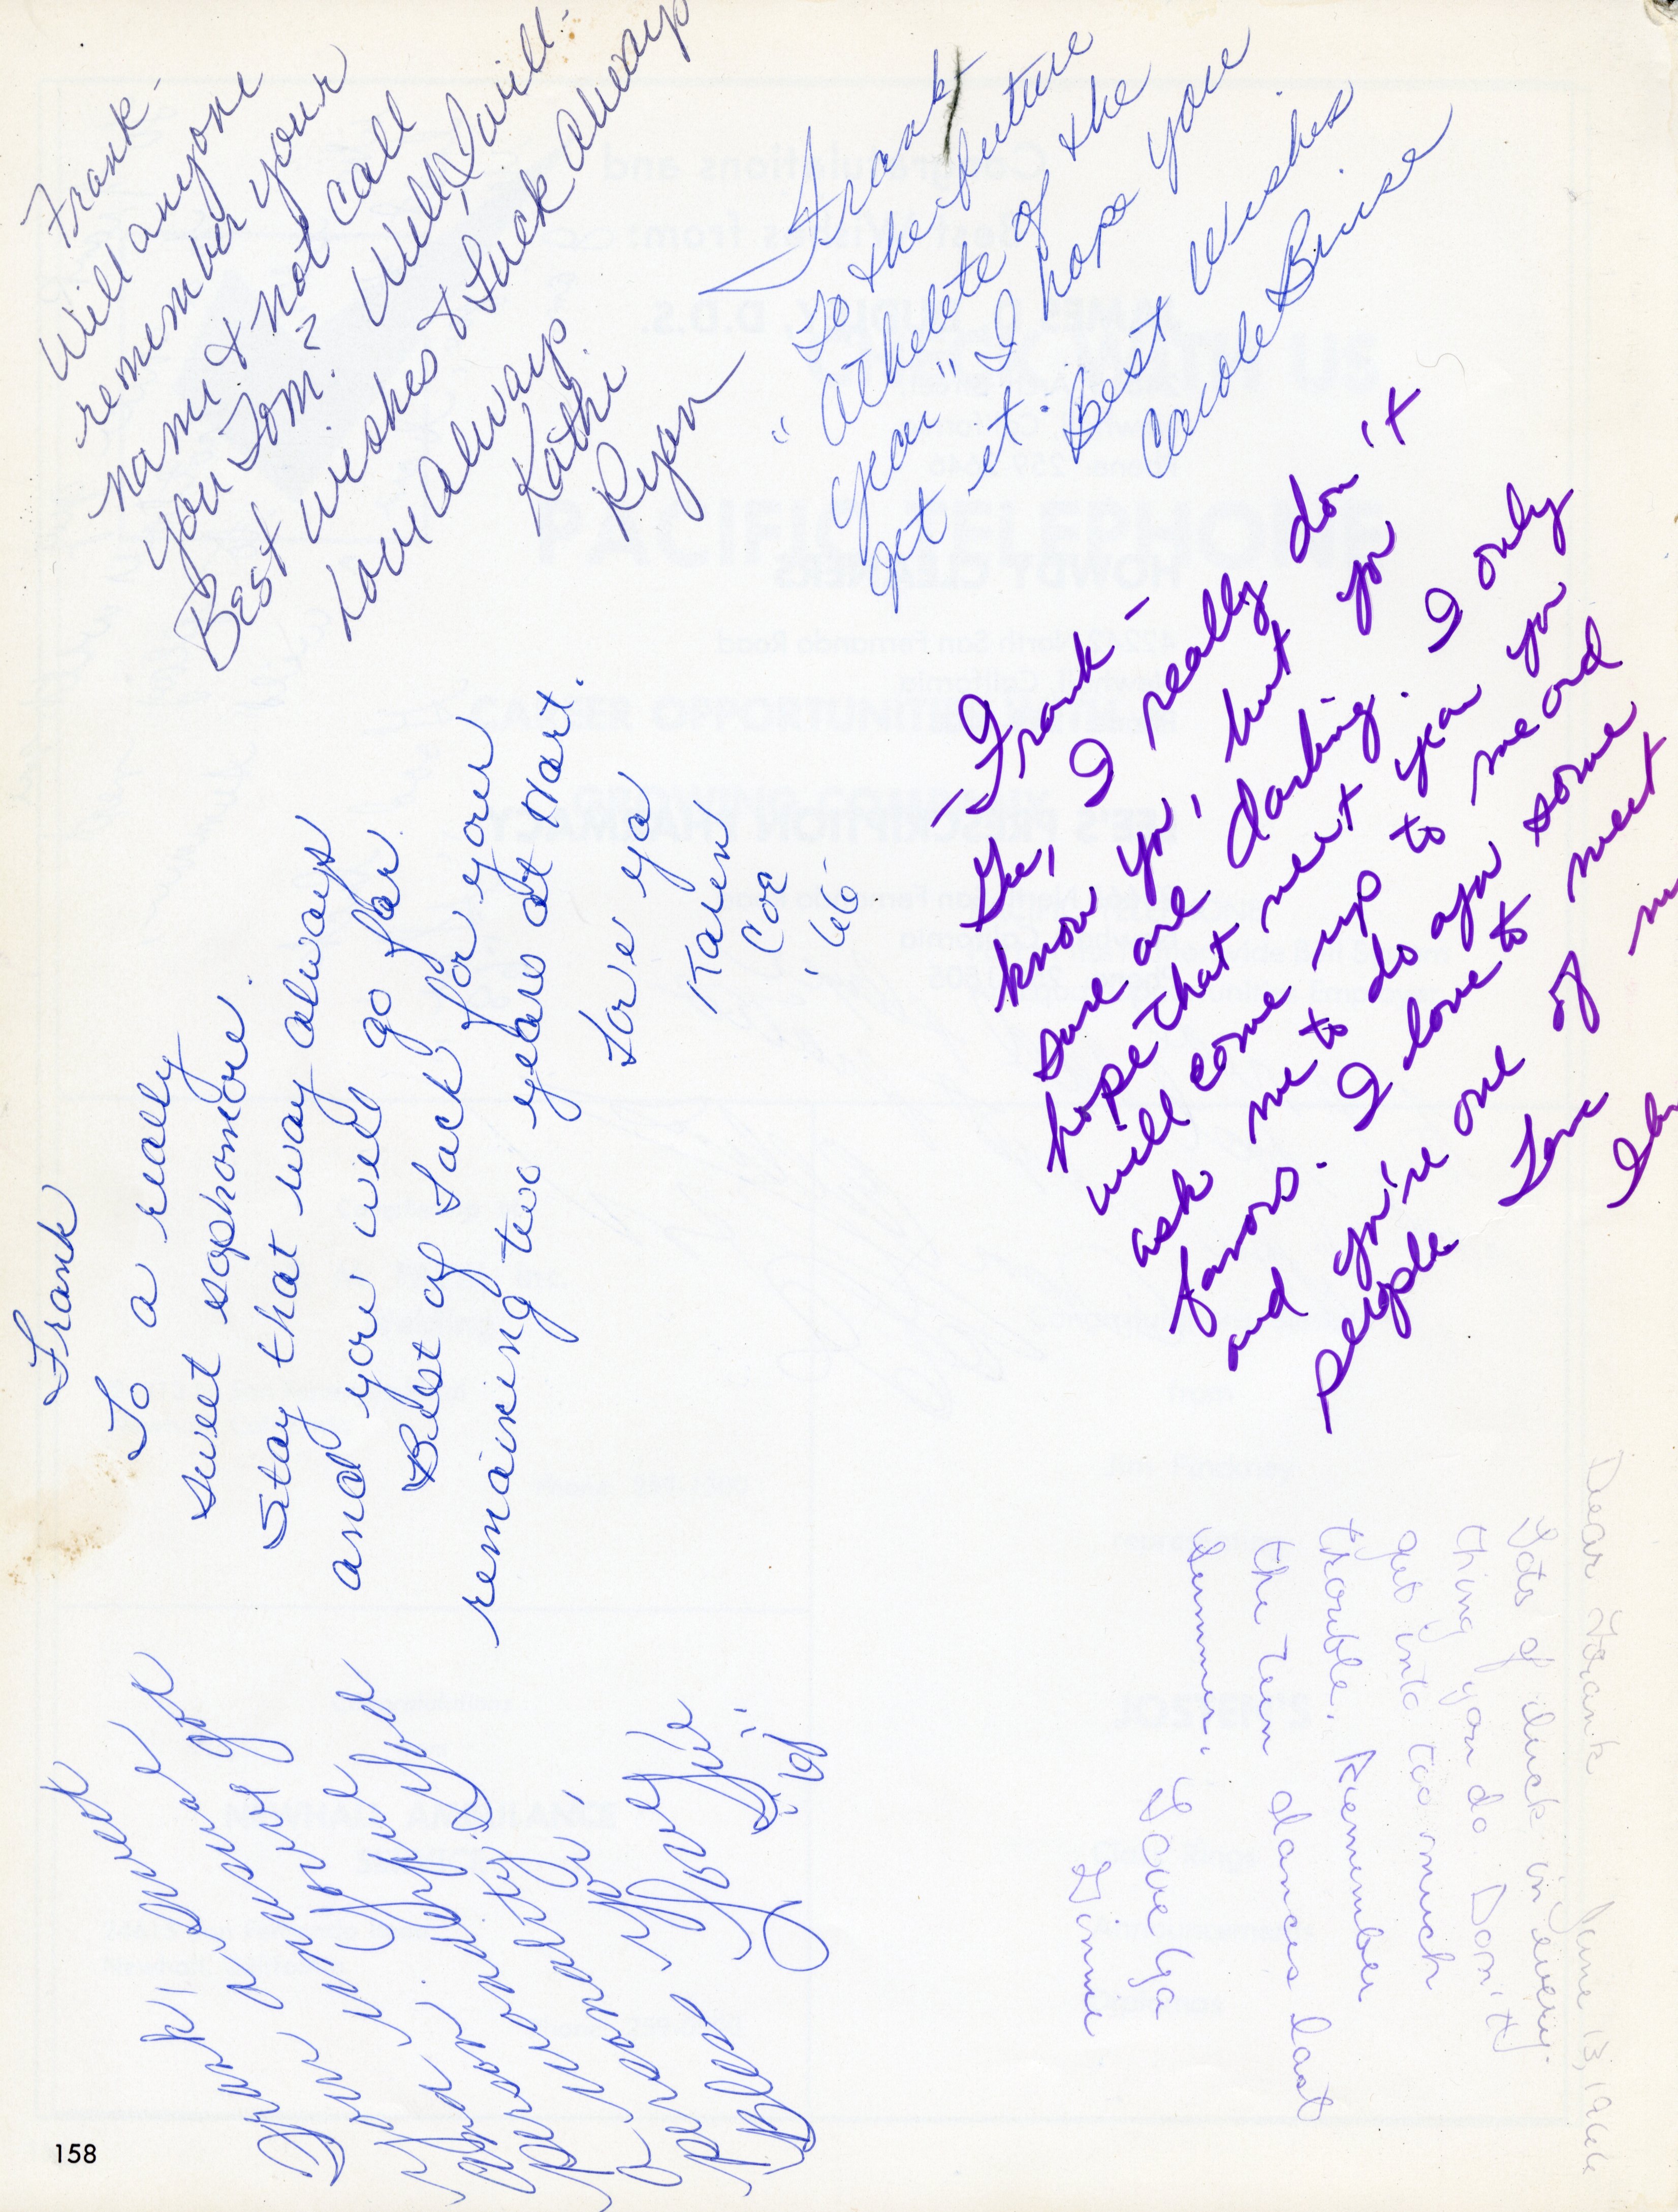 Frank -
Will anyone
remember your
name & not call
you Tom? Well, I will.
Best wishes & Luck Always
Love Always
Kathi
Ryan
Frank
To the future
"Athelete of the
year" I hope you
get it. Best Wishes
Carole Bruce
-Frank-
Gee, I really don't
know you, but you
sure are darling. I only
hope that next year you
will come up to me and
ask me to do you some
favors. I love to meet
and you're one of
people
Love
Frank
To a really
sweet sophomore.
Stay that way always
and you will go far.
Best of luck for your
remaining two years at Hart.
Love ya
Karen
Coe
'66
Frank, a sweet
God
personality.
personality,
God
Bless you
Love
'67
June 13, 1966
Dear Frank
Lots of luck in every-
thing you do. Don't
get into too much
trouble. Remember
the teen dances last
summer.
Love Ya
Ginnie
158